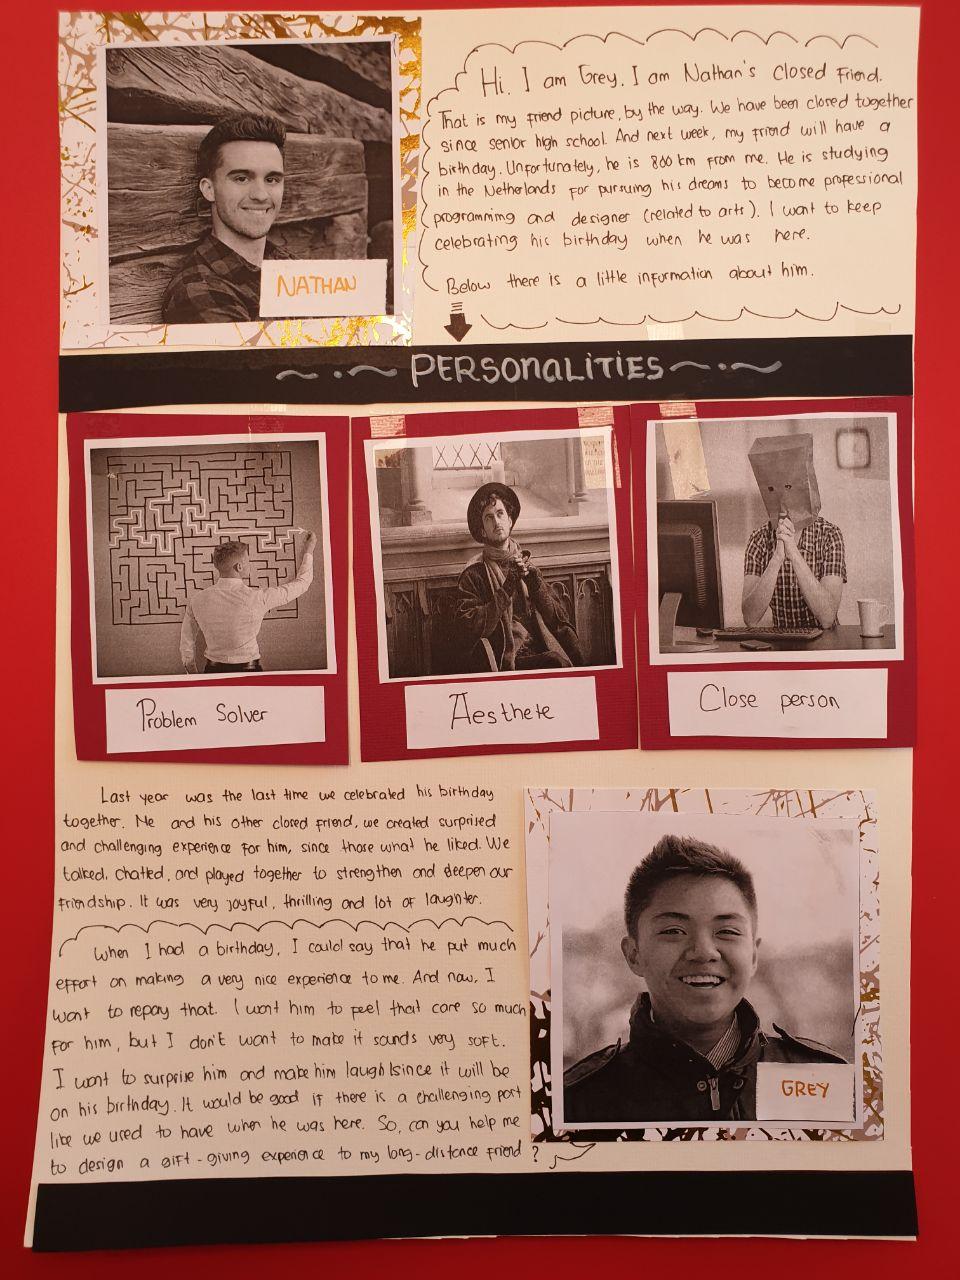 Hi. I am Grey. I am Nathan's closed friend.
That is my friend picture, by the way. We have been closed together
since senior high school. And next week, my friend will have a
birthday. Unfortunately, he is 860 km from me. He is studying
in the Netherlands for pursuing his dreams to become professional
programming and designer (related to arts). I want to keep
celebrating his birthday when he was here.
Below there is a little information about him.
NATHAN
PERSONALITIES
Problem Solver
Aesthete
Close person
Last year was the last time we celebrated his birthday
together. Me and his other closed friend, we created surprised
and challenging experience for him, since those what he liked. We
talked, chatted, and played together to strengthen and deepen our
friendship. It was very joyful, thrilling and lot of laughter.
When I had a birthday, I could say that he put much
effort on making a very nice experience to me. And now, I
want to repay that. I want him to feel that care so much
for him, but I don't want to make it sounds very soft.
I want to surprise him and make him laugh since it will be
on his birthday. It would be good if there is a challenging part
like we used to have when he was here. So, can you help me
to design a gift-giving experience to my long-distance friend?
GREY